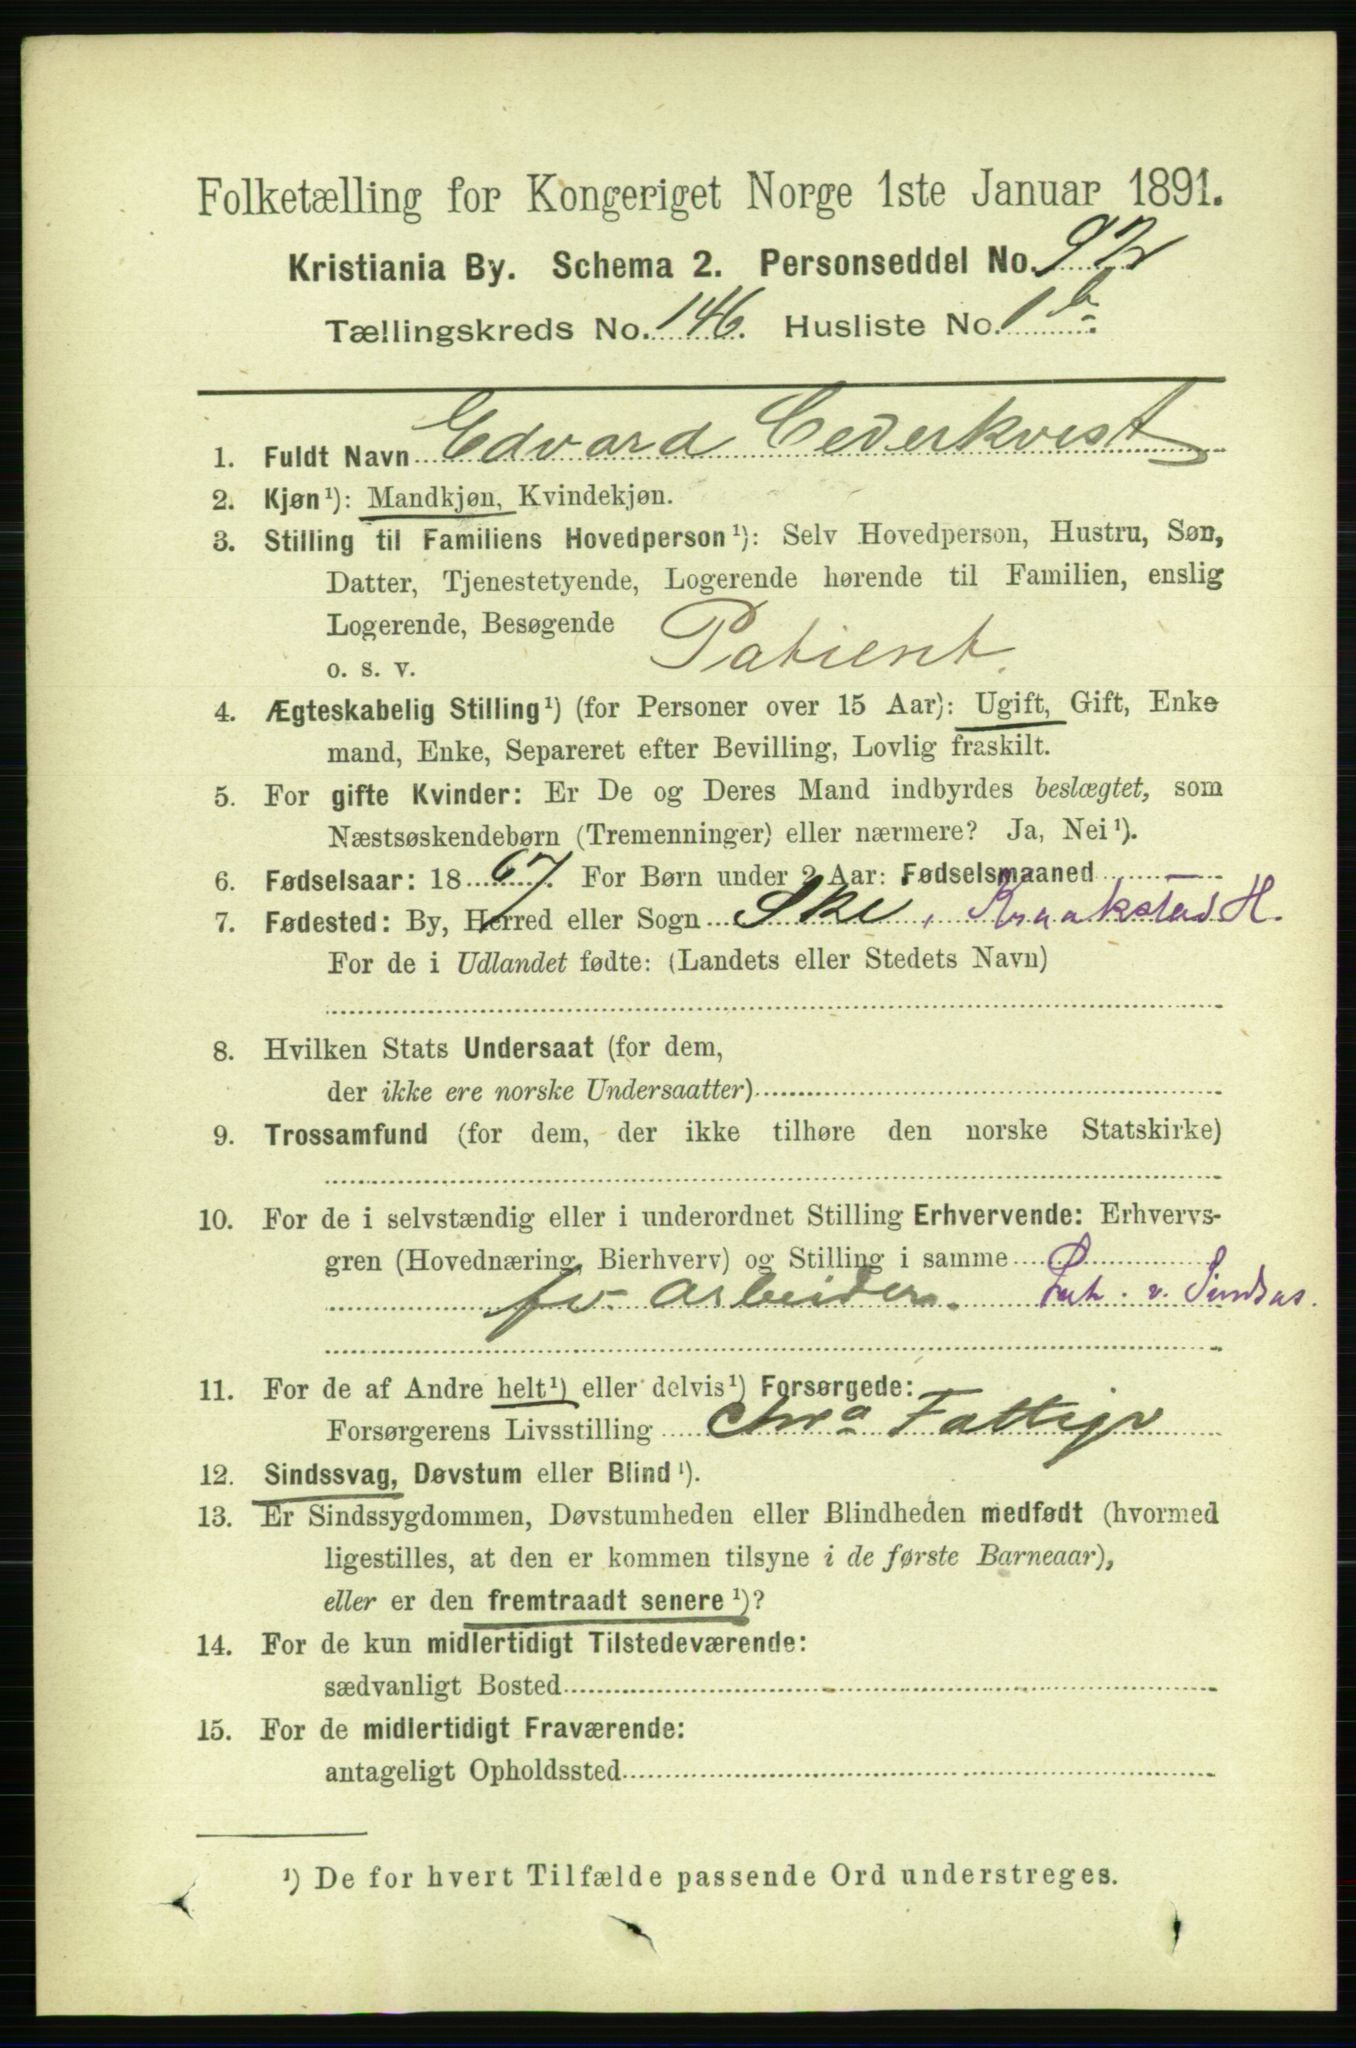 Folketælling for Kongeriget Norge 1ste Januar 1891.
Kristiania By. Schema 2. Personseddel No. 92
Tællingskreds No. 146. Husliste No. 1 b
1. Fuldt Navn Edvard Cederkvist
2. Kjøn¹): Mandkjøn, Kvindekjøn.
3. Stilling til Familiens Hovedperson¹): Selv Hovedperson, Hustru, Søn,
Datter, Tjenestetyende, Logerende hørende til Familien, enslig
Logerende, Besøgende
o. s. v. Patient
4. Ægteskabelig Stilling¹) (for Personer over 15 Aar): Ugift, Gift, Enke
mand, Enke, Separeret efter Bevilling, Lovlig fraskilt.
5. For gifte Kvinder: Er De og Deres Mand indbyrdes beslægtet, som
Næstsøskendebørn (Tremenninger) eller nærmere? Ja, Nei¹).
6. Fødselsaar: 1867. For Børn under 2 Aar: Fødselsmaaned
7. Fødested: By, Herred eller Sogn Ski, Kraakstad H.
For de i Udlandet fødte: (Landets eller Stedets Navn)
8. Hvilken Stats Undersaat (for dem,
der ikke ere norske Undersaatter)
9. Trossamfund (for dem, der ikke tilhøre den norske Statskirke)
10. For de i selvstændig eller i underordnet Stilling Erhvervende: Erhvervs-
gren (Hovednæring, Bierhverv) og Stilling i samme
fv. arbeider. v. Sindsas.
11. For de af Andre helt¹) eller delvis¹) Forsørgede:
Forsørgerens Livsstilling Chra Fattigv
12. Sindssvag, Døvstum eller Blind¹).
13. Er Sindssygdommen, Døvstumheden eller Blindheden medfødt (hvormed
ligestilles, at den er kommen tilsyne i de første Barneaar),
eller er den fremtraadt senere¹)?
14. For de kun midlertidigt Tilstedeværende:
sædvanligt Bosted
15. For de midlertidigt Fraværende:
antageligt Opholdssted
¹) De for hvert Tilfælde passende Ord understreges.